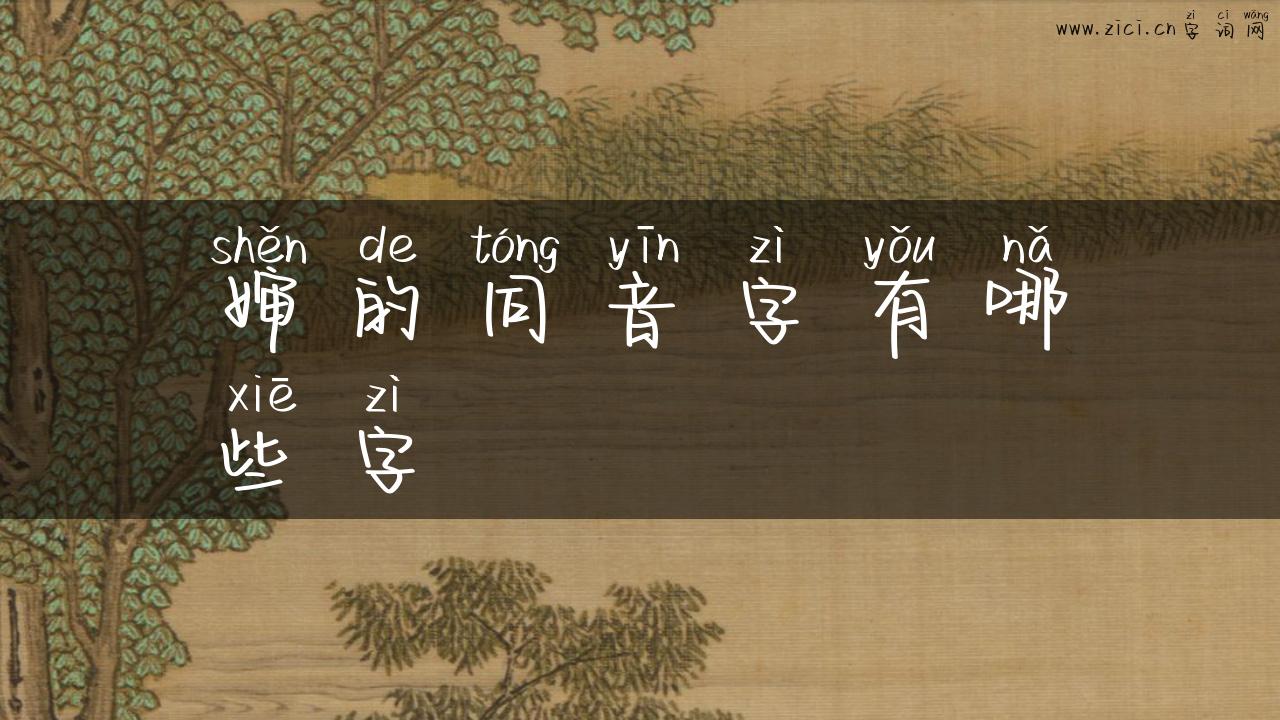 zì cí wǎng
www.zici.cn 字词网
shěn de tóng yīn zì yǒu nǎ
婶的同音字有哪
xiē zì
些字